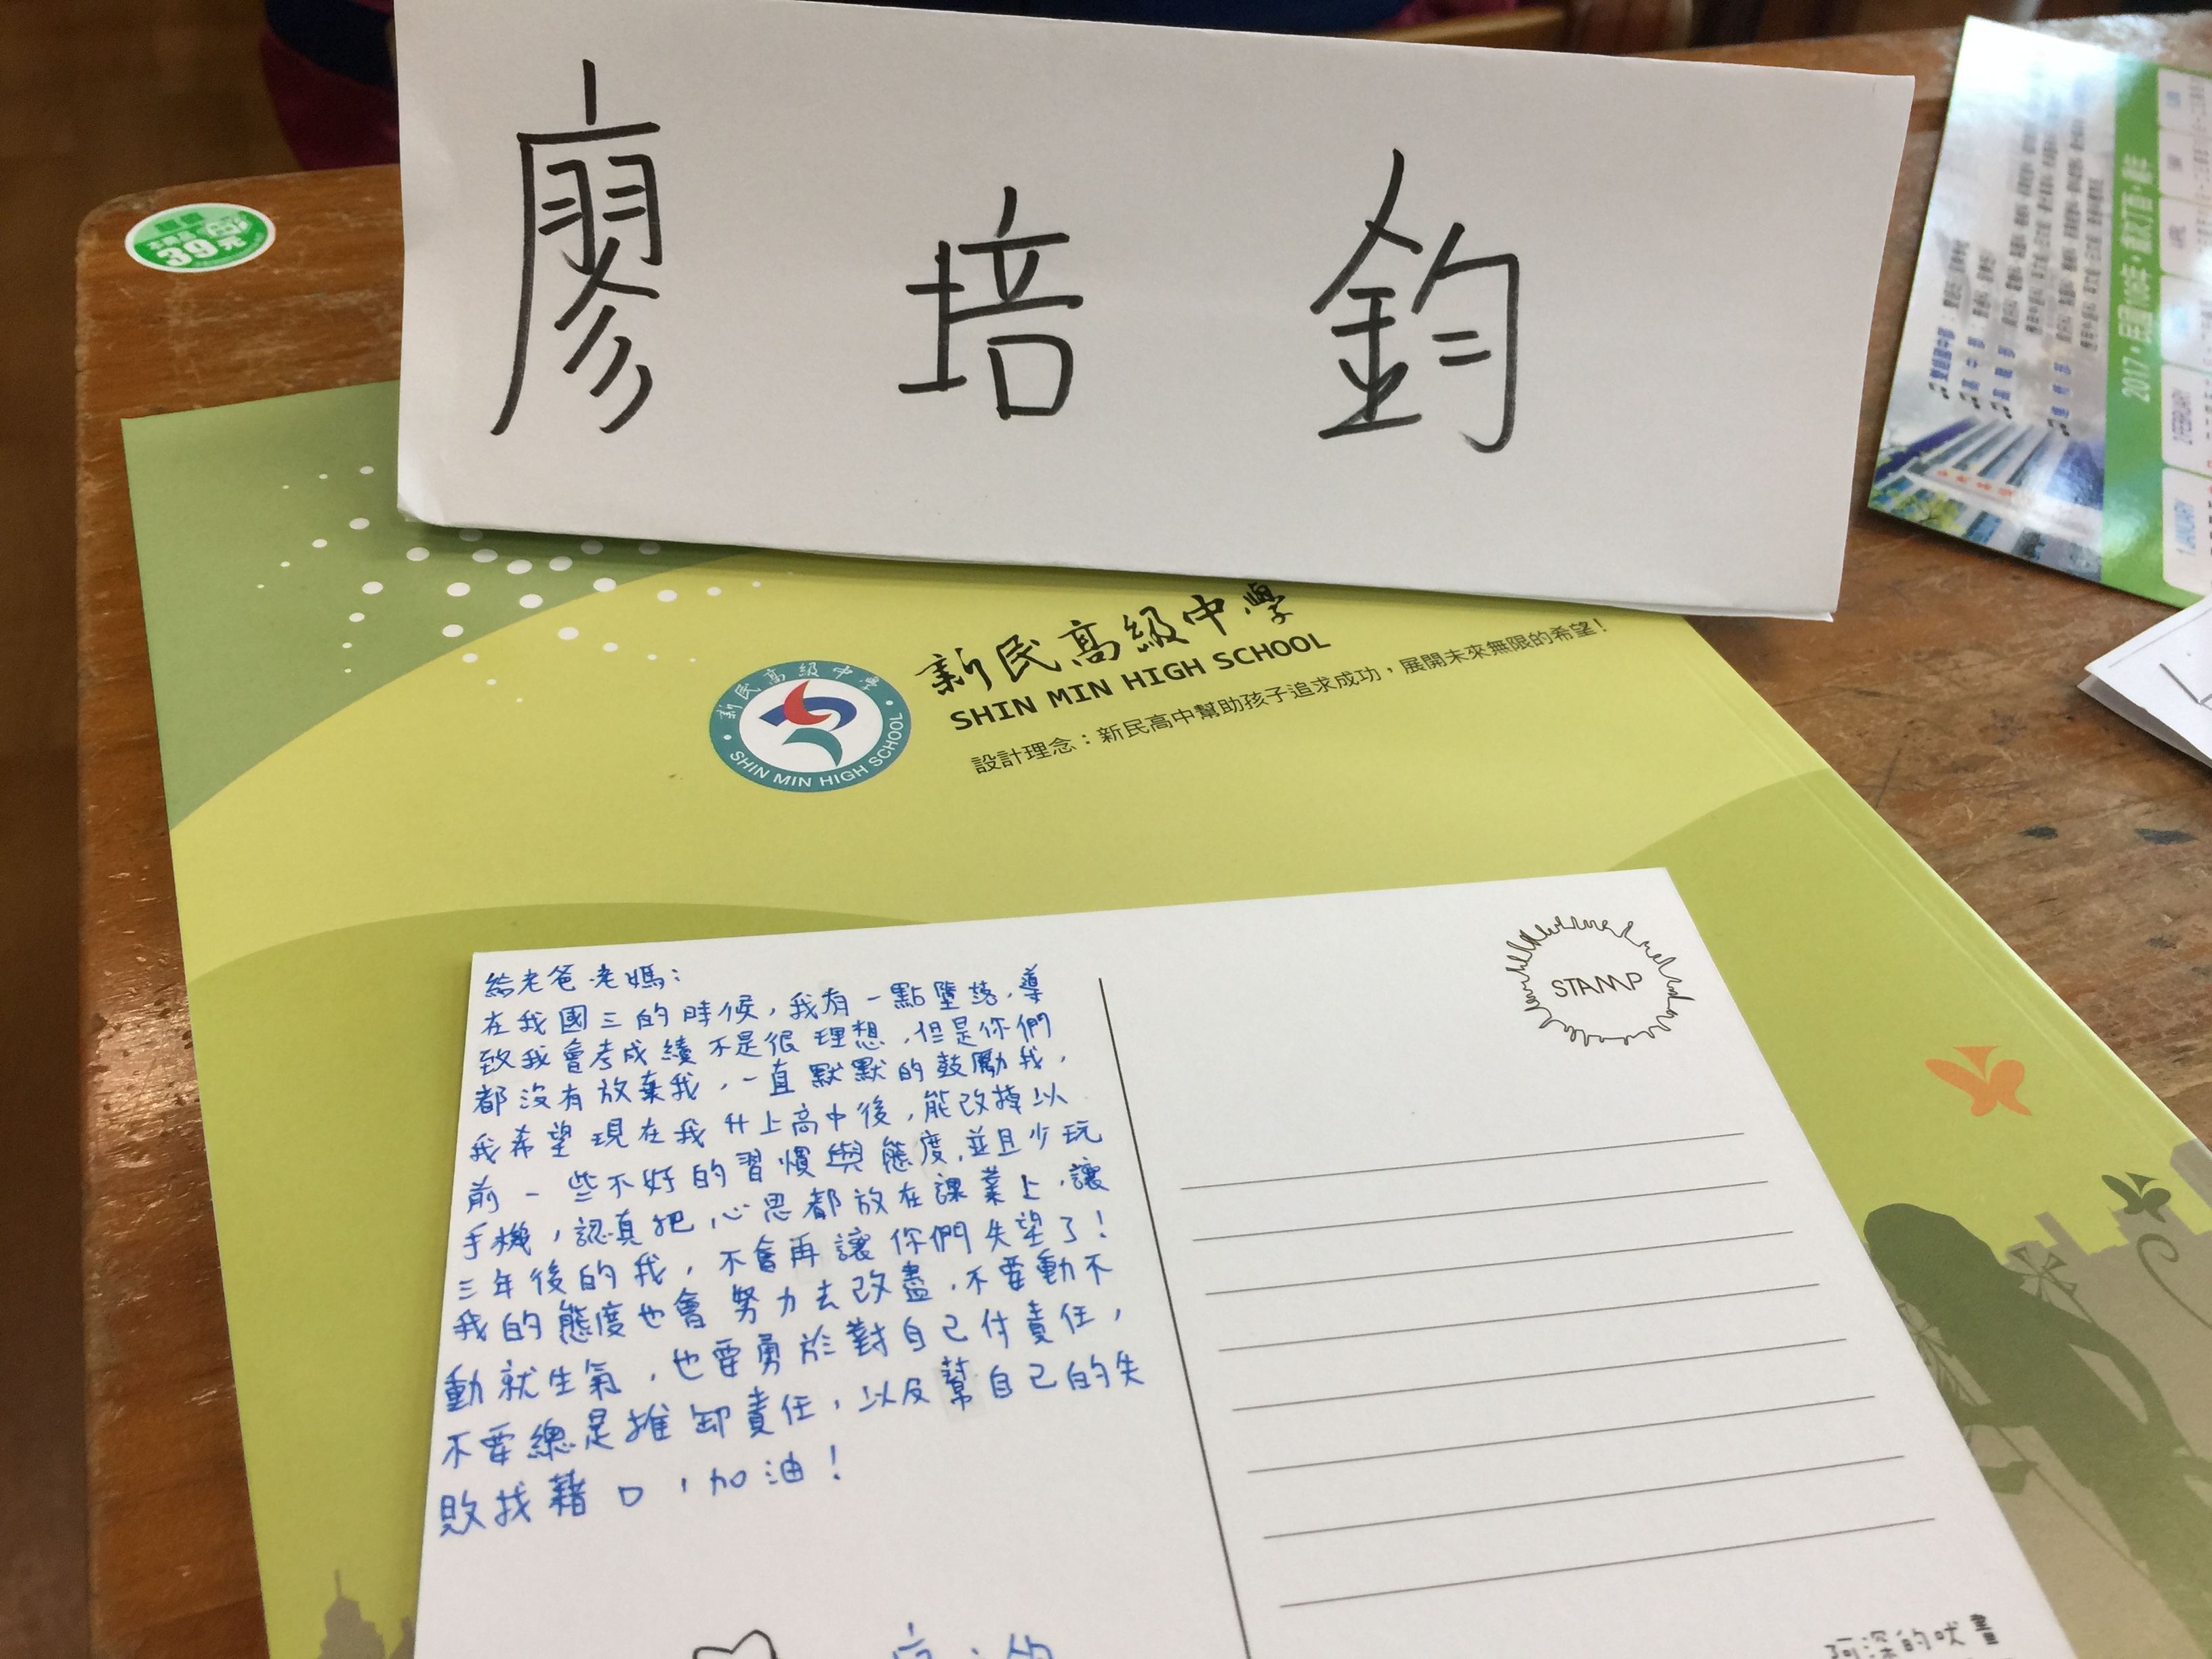 廖 培 鈞
本商品
39元
新民高級中學
SHIN MIN HIGH SCHOOL
設計理念：新民高中幫助孩子追求成功，展開未來無限的希望！
新民高級中學
SHIN MIN HIGH SCHOOL
2017·民國106年·歲次丁酉·雞年
1 JANUARY
2 FEBRUARY
給老爸.老媽：
在我國三的時候，我有一點墮落，導
致我會考成績不是很理想，但是你們
都沒有放棄我，一直默默的鼓勵我，
我希望現在我升上高中後，能改掉以
前一些不好的習慣與態度，並且少玩
手機，認真把心思都放在課業上，讓
三年後的我，不會再讓你們失望了！
我的態度也會努力去改盡，不要動不
動就生氣，也要勇於對自己付責任，
不要總是推卸責任，以及幫自己的失
敗找藉口，加油！
STAMP
阿深的吠畫